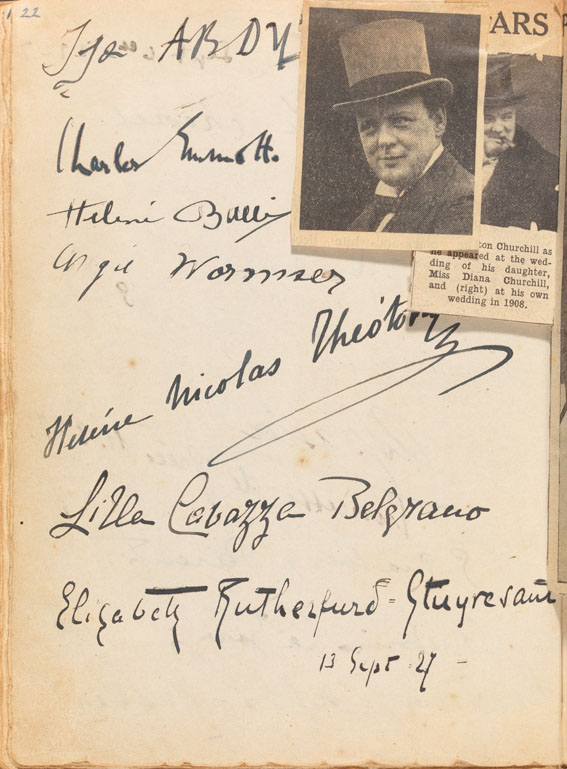 22
ARS
Ija ARDY
Charles Emmott.
Helené
Wormser
Helène Nicolas Theótoky
Lilla Cavazza Belgrano
Elizabeth Rutherfurd-Stuyvesant
13 Sept 27 -
ton Churchill as
he appeared at the wed-
ding of his daughter,
Miss Diana Churchill,
and (right) at his own
wedding in 1908.